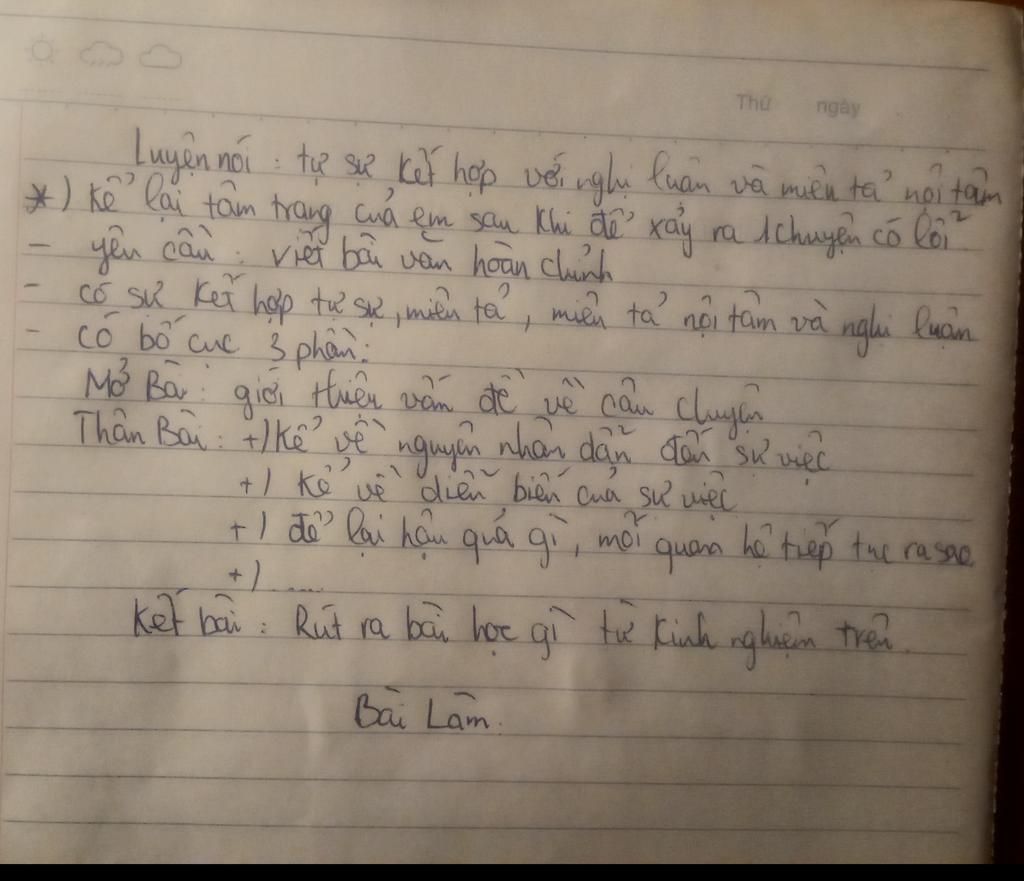 Thứ ngày
Luyện nói : tự sự kết hợp với nghị luận và miêu tả nội tâm
*) Kể lại tâm trạng của em sau khi để xảy ra 1 chuyện có lỗi
- yêu cầu : viết bài văn hoàn chỉnh
- có sự kết hợp tự sự, miêu tả, miêu tả nội tâm và nghị luận
- có bố cục 3 phần :
Mở Bài : giới thiệu vấn đề về câu chuyện
Thân Bài : +) Kể về nguyên nhân dẫn đến sự việc
+) Kể về diễn biến của sự việc
+) để lại hậu quả gì, mối quan hệ tiếp tục ra sao
+) .....
Kết bài : Rút ra bài học gì từ kinh nghiệm trên.
Bài Làm.